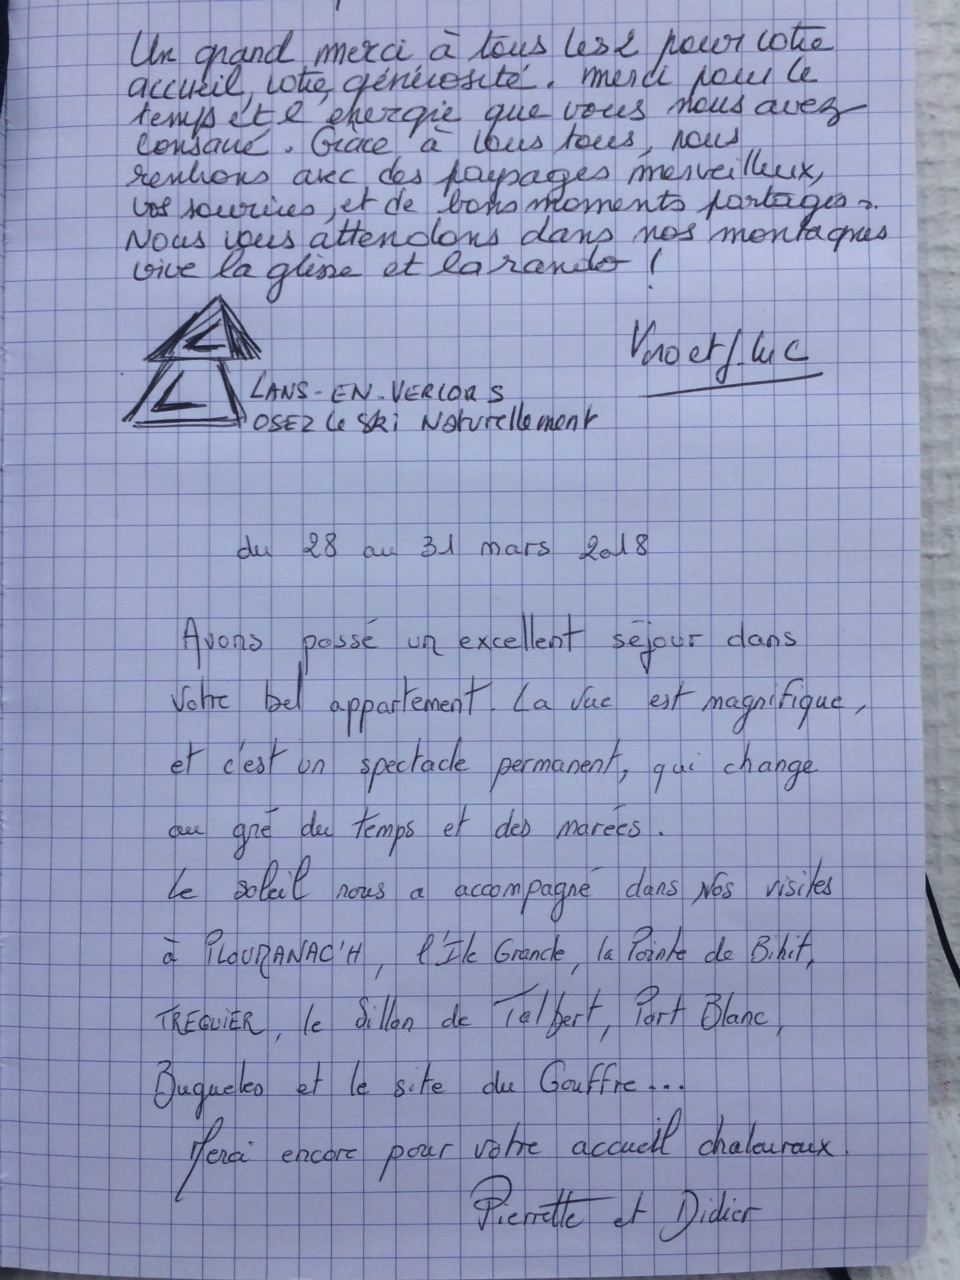 Un grand merci à tous les 2 pour votre
accueil, votre générosité. merci pour le
temps et l'énergie que vous nous avez
consacré. Grâce à vous tous, nous
rentrons avec des paysages merveilleux,
vos sourires, et de bons moments partagés.
Nous vous attendons dans nos montagnes
vive la glisse et la rando !
LANS-EN-VERCORS
OSEZ le Ski Naturellement
du 28 au 31 mars 2018
Avons passé un excellent séjour dans
votre bel appartement. La vue est magnifique,
et c'est un spectacle permanent, qui change
au gré du temps et des marées.
Le soleil nous a accompagné dans nos visites
à PLOUMANAC'H, l'Ile Grande, la Pointe de Bihit,
TREGUIER, le Sillon de Talbert, Port Blanc,
Bugueles et le site du Gouffre...
Merci encore pour votre accueil chaleureux.
Pierrette et Didier